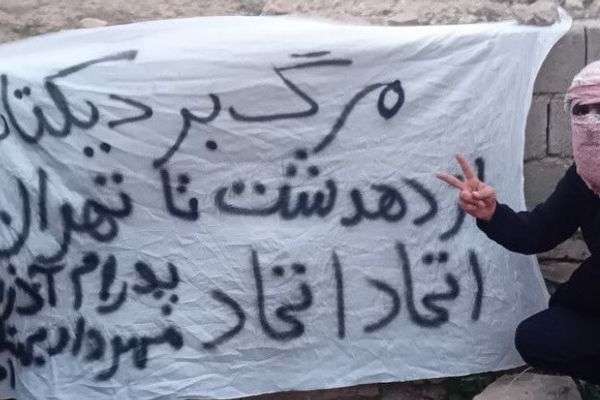 مرگ بر دیکتا
از دهدشت تا تهران
اتحاد اتحاد
پدرام آذر
مهرداد بهن